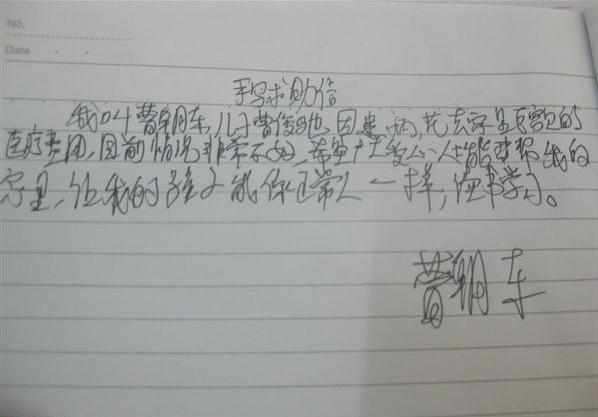 No.
Date
手写求助信
我叫曹朝东,儿子曹俊驰,因患病,花去家里巨额的
医疗费用,目前情况非常不好,希望广大爱心人士能帮帮我的
家里,让我的孩子能像正常人一样,读书学习。
曹朝东